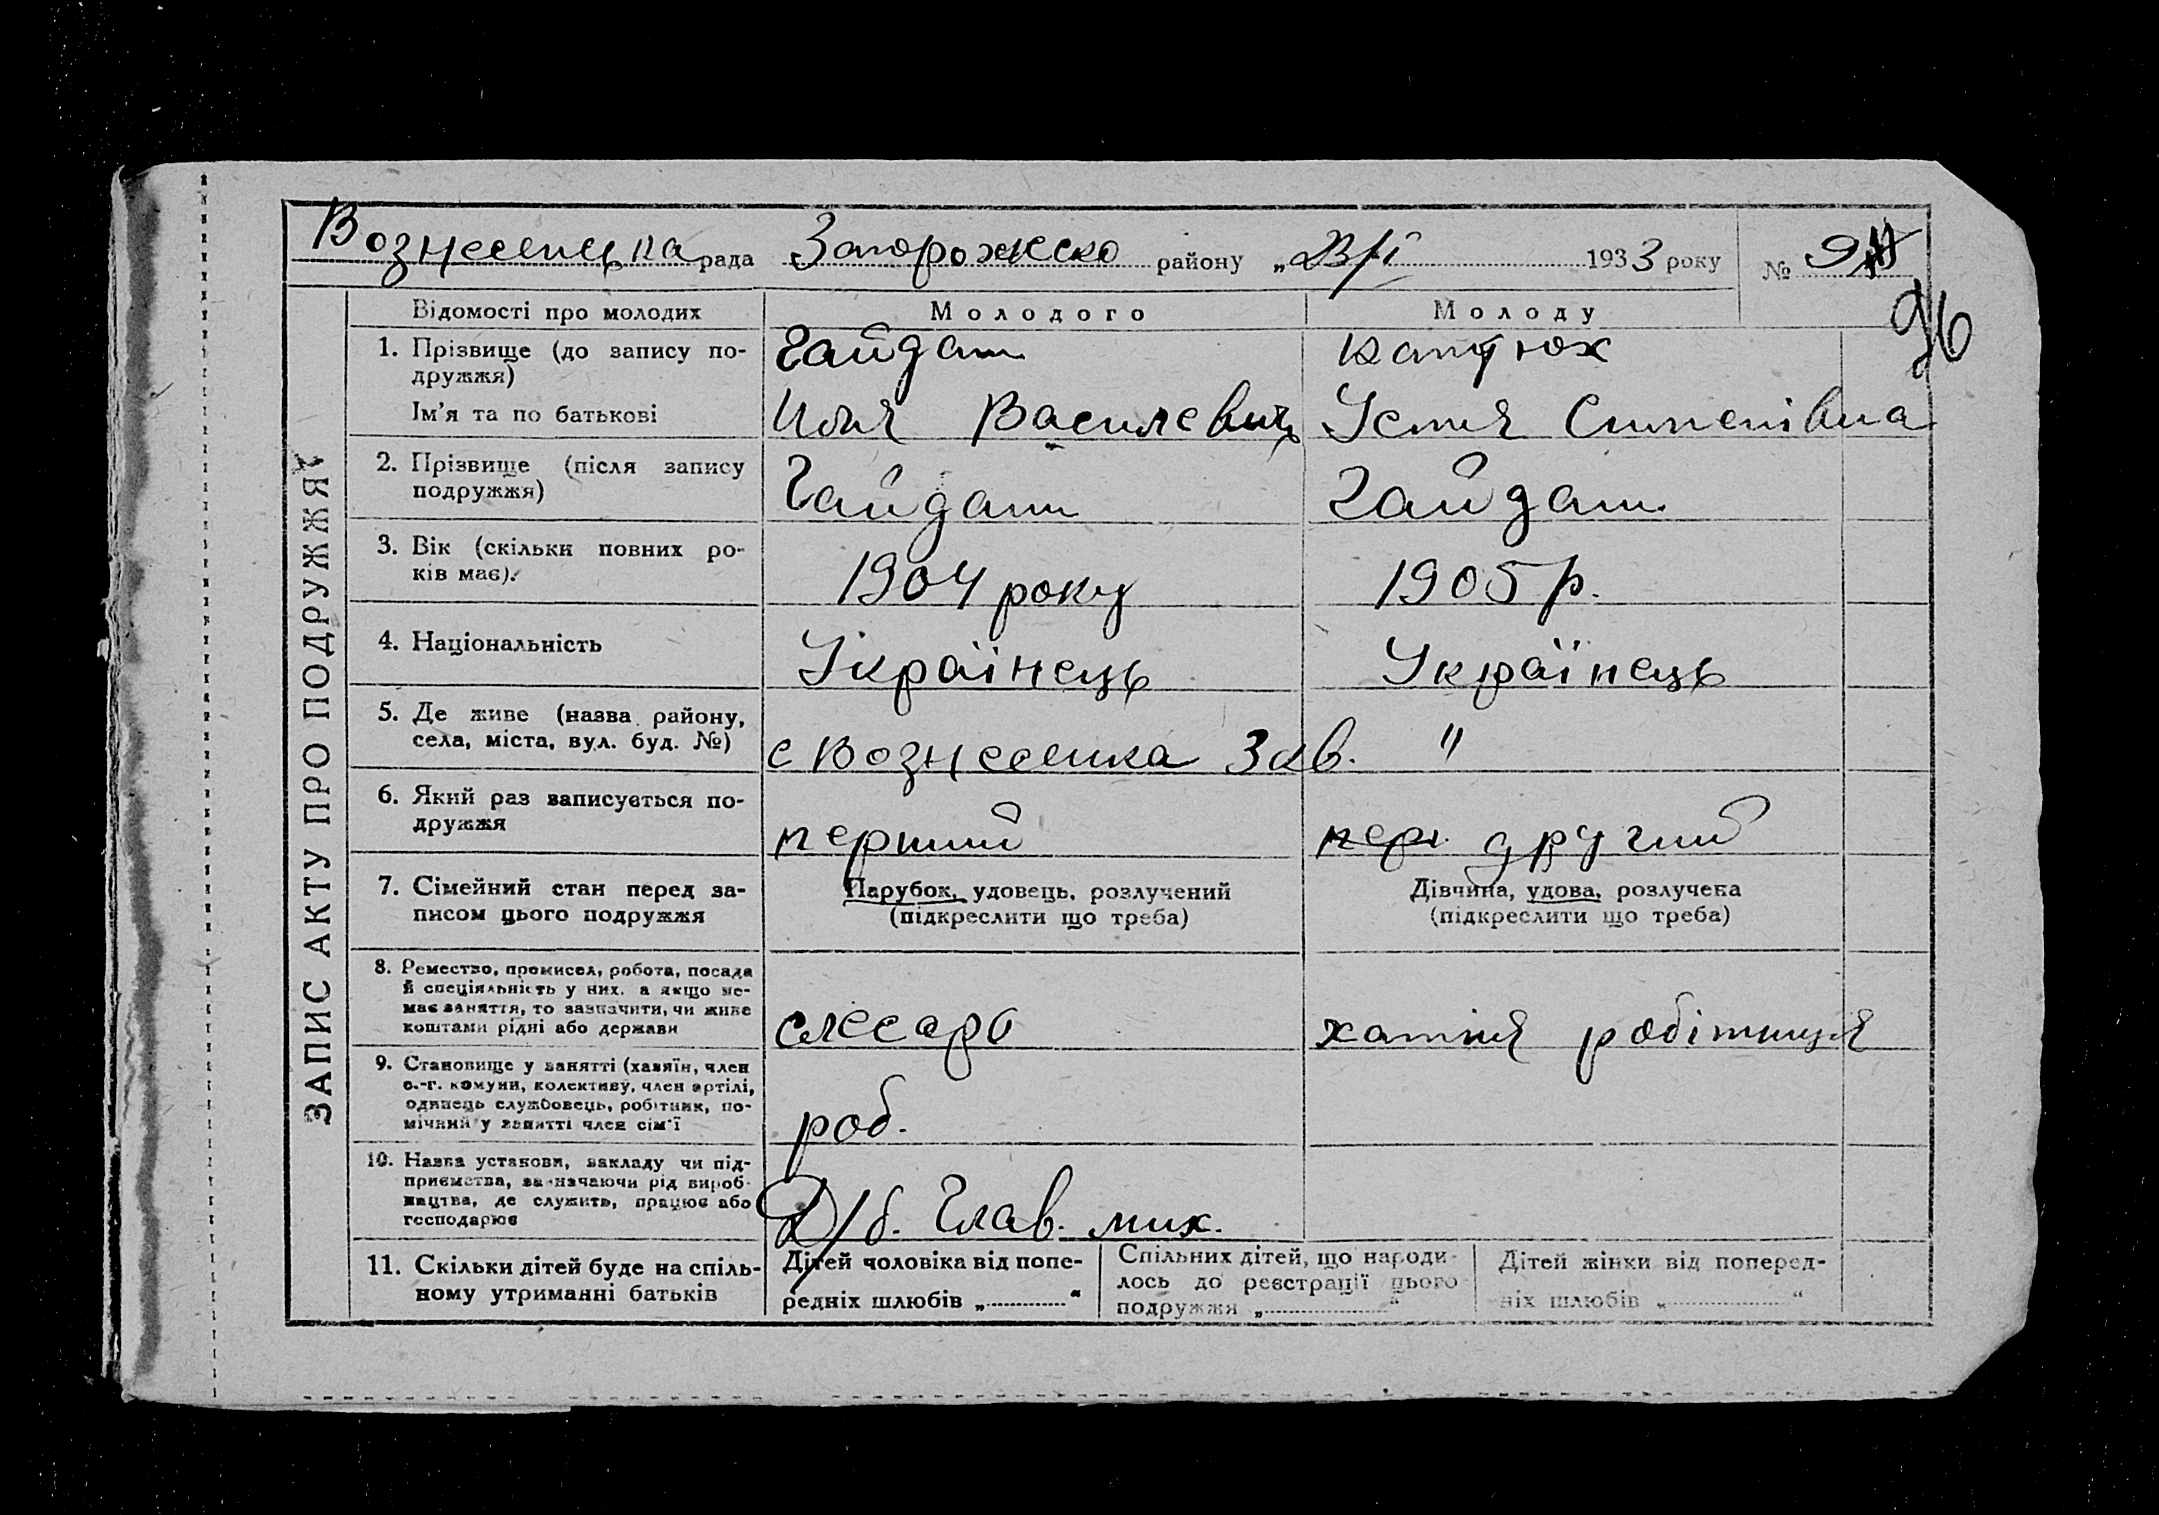 Вознесенська рада Запорожсько району „23/I 1933 року № 9
96
ЗАПИС АКТУ ПРО ПОДРУЖЖЯ
Відомості про молодих Молодого Молоду
1. Прізвище (до запису по- Гайдаш
дружжя)
Ім'я та по батькові Илля Василевич Устя Степенівна
2. Прізвище (після запису Гайдаш Гайдаш
подружжя)
3. Вік (скільки повних ро- 1904 року 1905 р.
ків має).
4. Національність Українець Українець
5. Де живе (назва району, с Вознесенка 3 кв. "
села, міста, вул. буд. №)
6. Який раз записується по- перший пері другий
дружжя
7. Сімейний стан перед за- Парубок, удовець, розлучений Дівчина, удова, розлучена
писом цього подружжя (підкреслити що треба) (підкреслити що треба)
8. Ремество, промисел, робота, посада
й спеціяльність у них, а якщо не-
має заняття, то зазначити, чи живе
коштами рідні або держави слесарь хатня робітниця
9. Становище у занятті (хазяїн, член
с.-г. комуни, колективу, член артілі,
одинець службовець, робітник, по-
мічний у занятті член сім'ї роб.
10. Назва установи, закладу чи під-
приємства, зазначаючи рід вироб-
ництва, де служить, працює або
господарює Д/б. Глав. мих.
11. Скільки дітей буде на спіль-
ному утриманні батьків
Дітей чоловіка від попе-
редніх шлюбів „ “
Спільних дітей, що народи-
лось до реєстрації цього
подружжя „ “
Дітей жінки від поперед-
ніх шлюбів „ “